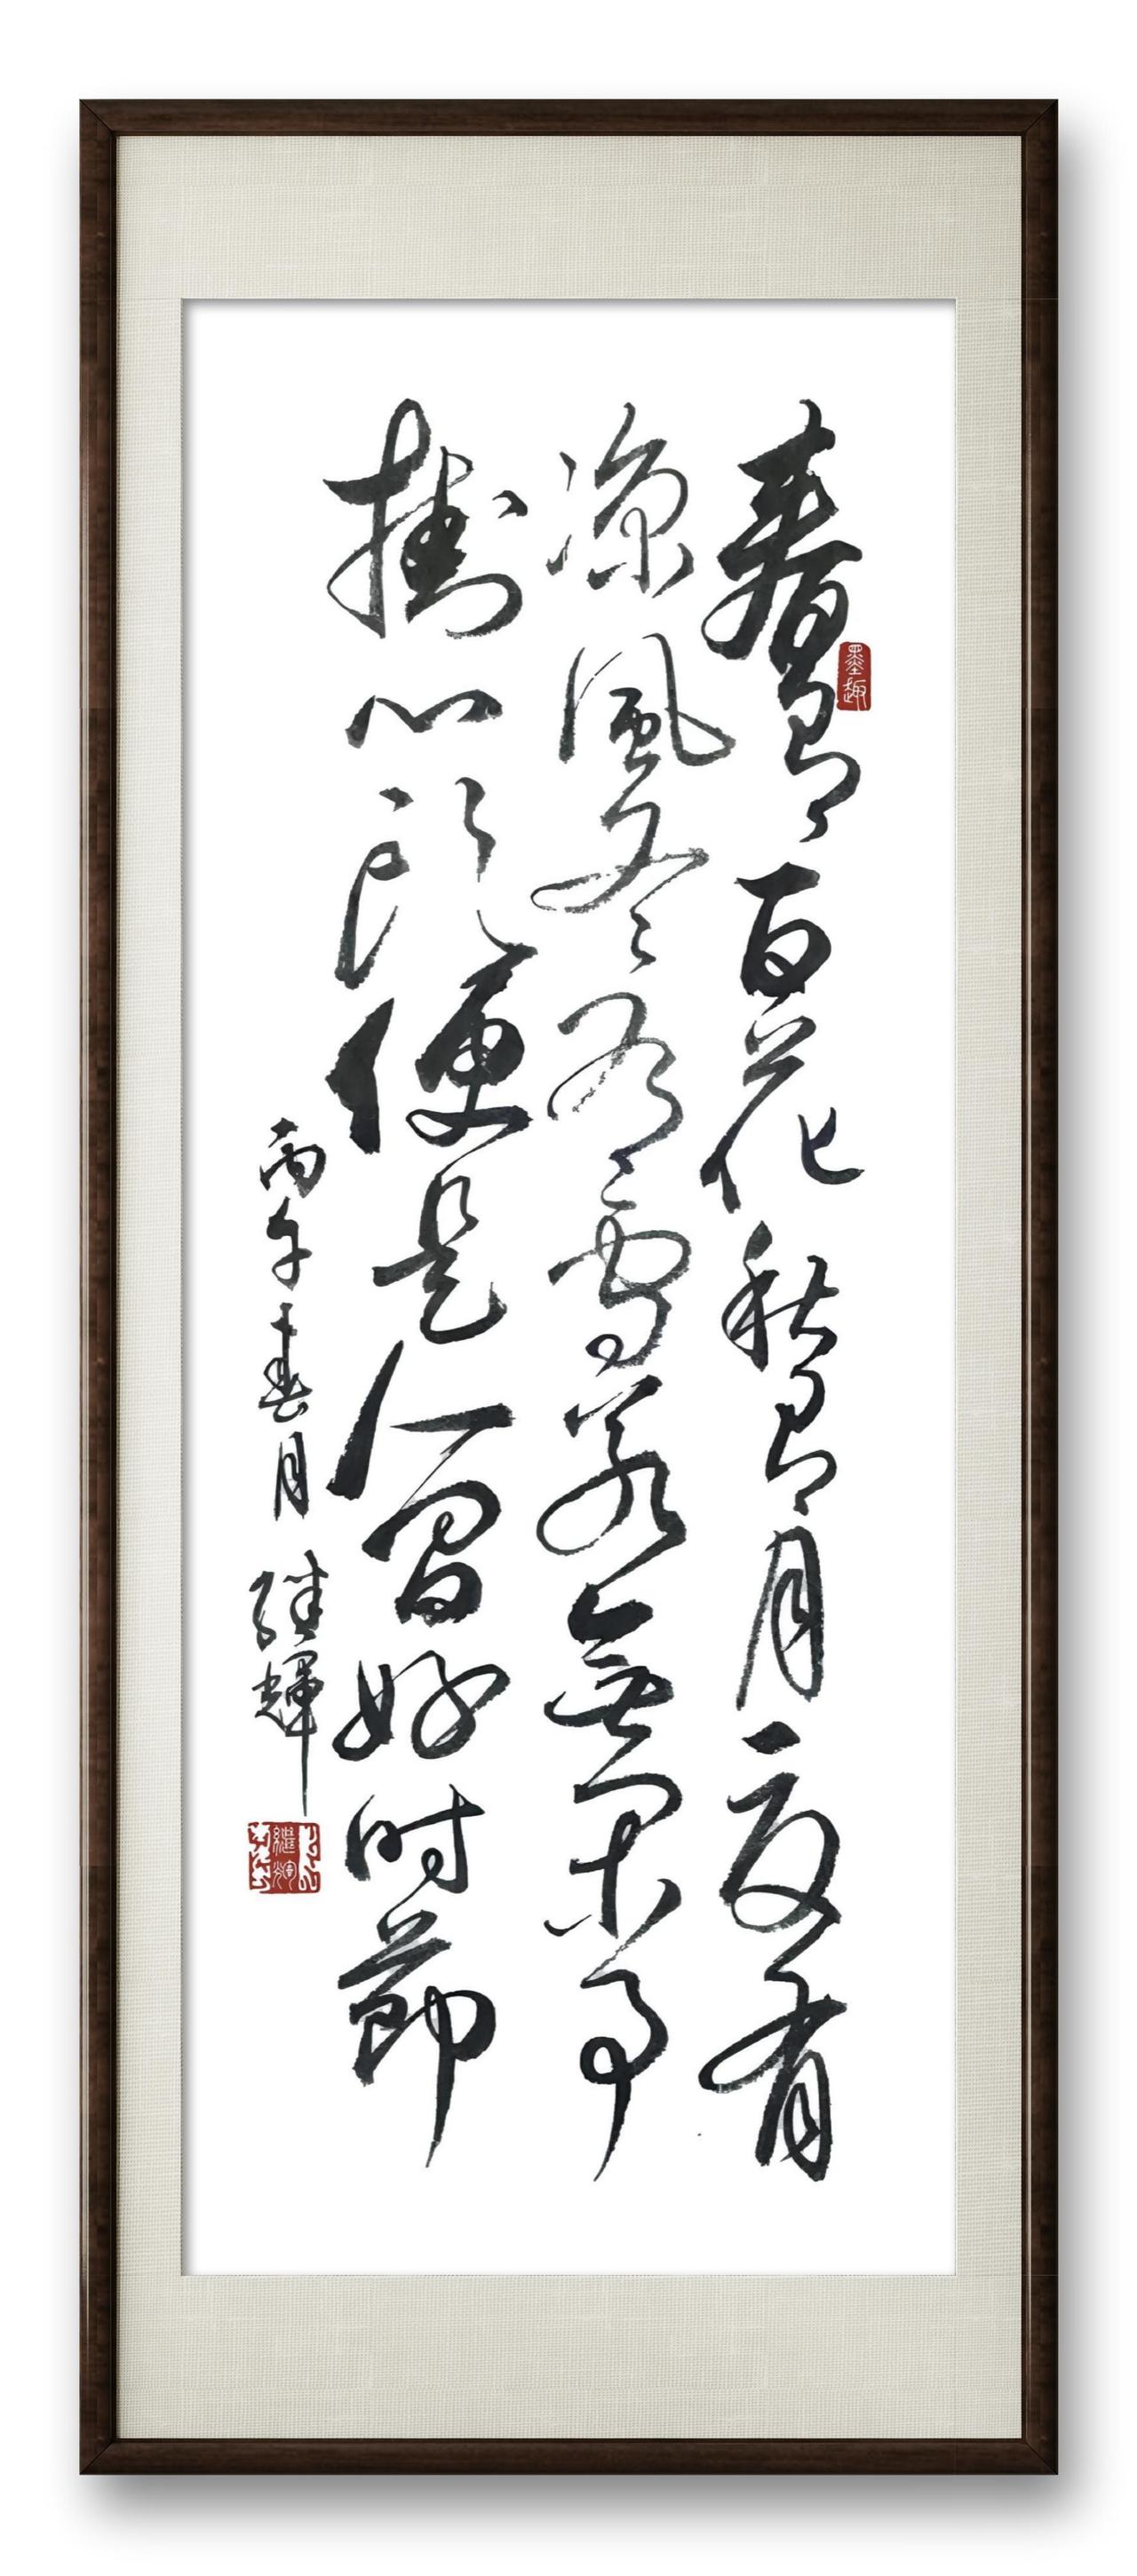 春有百花秋有月夏有
凉風冬有雪若無閑事
掛心頭便是人間好时節
丙午春月 继輝
墨趣